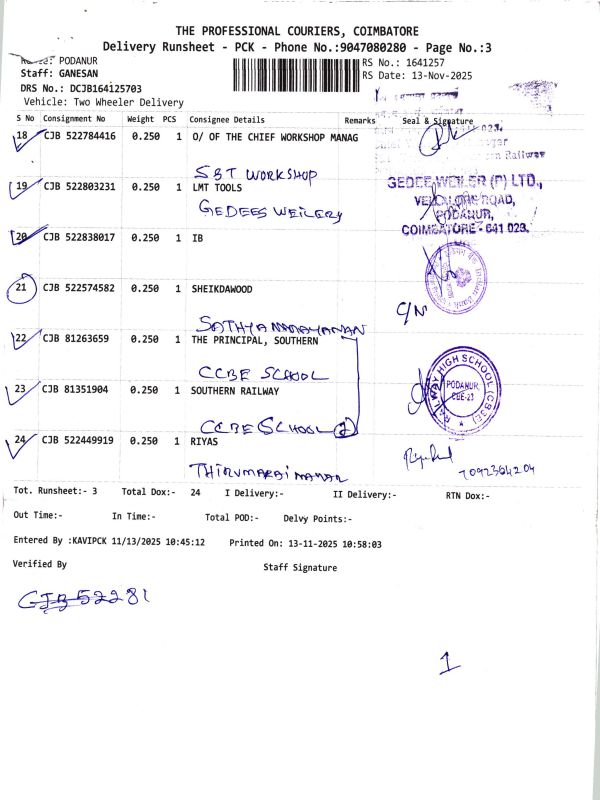 THE PROFESSIONAL COURIERS, COIMBATORE
Delivery Runsheet - PCK - Phone No.:9047080280 - Page No.:3
PODANUR
RS No.: 1641257
Staff: GANESAN
RS Date: 13-Nov-2025
DRS No.: DCJB164125703
Vehicle: Two Wheeler Delivery
S No Consignment No Weight PCS Consignee Details Remarks Seal & Signature
18 CJB 522784416 0.250 1 O/ OF THE CHIEF WORKSHOP MANAG
Railway
S&T WORKSHOP
19 CJB 522803231 0.250 1 LMT TOOLS
GEDEES WEILERY
GEDEE WEILER (P) LTD.,
VELLALORE ROAD,
PODANUR,
COIMBATORE - 641 023.
20 CJB 522838017 0.250 1 IB
Indian Bank
21 CJB 522574582 0.250 1 SHEIKDAWOOD
C/N
SATHYA NARAYANAN
22 CJB 81263659 0.250 1 THE PRINCIPAL, SOUTHERN
CCBE SCHOOL
23 CJB 81351904 0.250 1 SOUTHERN RAILWAY
CCBE SCHOOL 2
RAILWAY HIGH SCHOOL (CBSE)
PODANUR,
CBE-23
24 CJB 522449919 0.250 1 RIYAS
THIRUMARAI NAGAR
7092364204
Tot. Runsheet:- 3 Total Dox:- 24 I Delivery:- II Delivery:- RTN Dox:-
Out Time:- In Time:- Total POD:- Delvy Points:-
Entered By :KAVIPCK 11/13/2025 10:45:12 Printed On: 13-11-2025 10:58:03
Verified By Staff Signature
CJB 52281
1